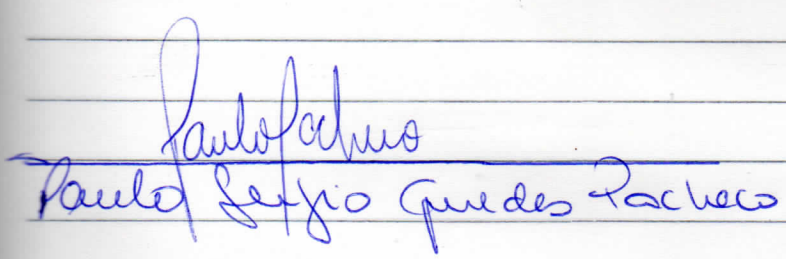 Paulo Pacheco
Paulo Sergio Guedes Pacheco